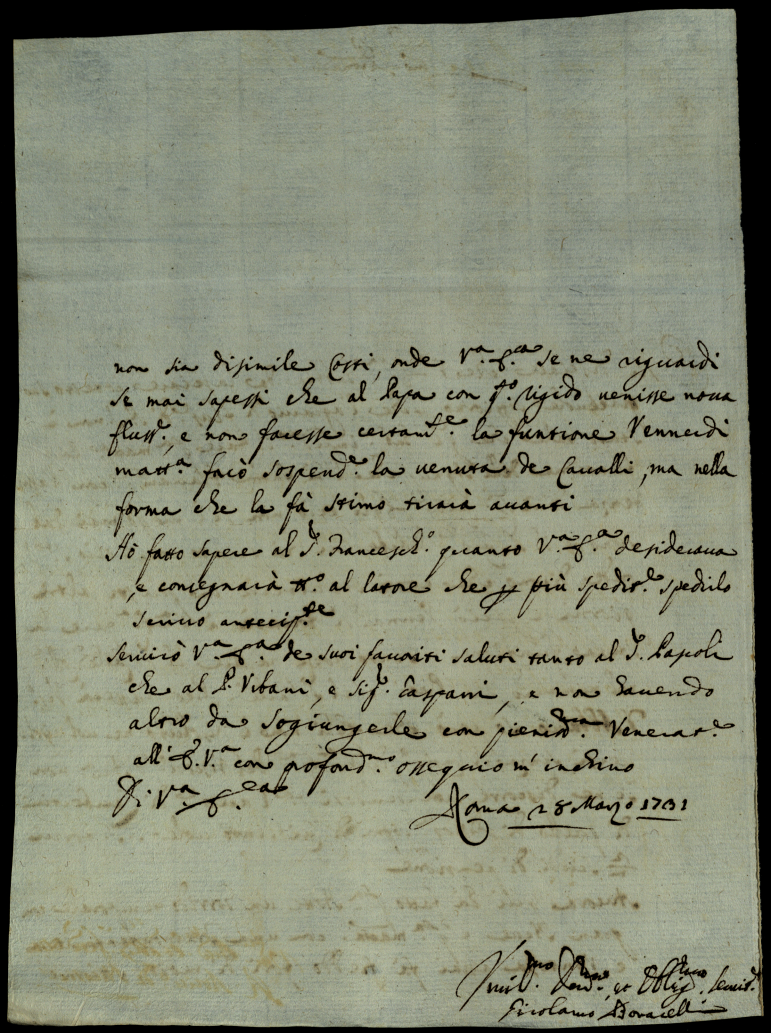 non sia disimile Costi, onde V.ª se ne riguardi
se mai sapessi che al Papa con q.º rigido venisse nova
fluss.e, e non facesse certam.e la funtione Vennerdi
matt.a farò sospend.e la venuta de Cavalli, ma nella
forma che la fà stimo tirarà avanti
Hò fatto sapere al S.r Francesch.o quanto V.ª desiderava
e consegnarà al latore che più spedir.e spedirlo
scrivo antecip.te
servirò V.ª de suoi favoriti saluti tanto al S.r Papoli
che al P. Vibani, e Sig.r Gaspari, e non havendo
altro da sogiungerle con pienis.ma Venerat.e
all' V.ª con profond.mo ossequio m' inchino
Di V.ª
Roma 28 Marzo 1731
Umil.mo Dev.mo, et Oblig.mo Servit.e
Girolamo